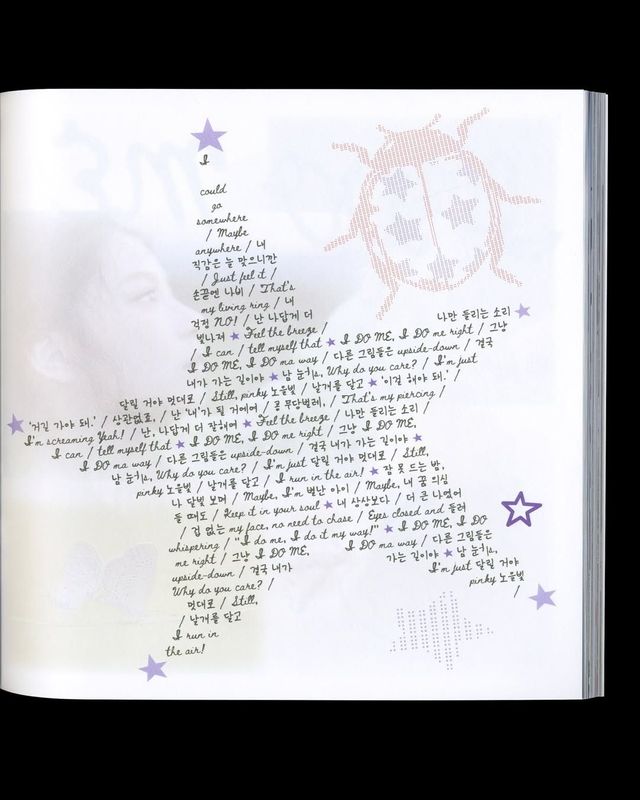 I
could
go
somewhere
/ Maybe
anywhere / 내
직감은 늘 맞으니깐
/ Just feel it /
손끝엔 나비 / That's
my living ring / 내
걱정 NO! / 난 나답게 더
빛나져 ★ Feel the breeze /
나만 들리는 소리
/ I can / tell myself that ★ I DO ME, I DO me right / 그냥
I DO ME, I DO ma way / 다른 그림들은 upside-down / 결국
내가 가는 길이야 ★ 남 눈치s, Why do you care? / I'm just
달릴 거야 멋대로 / Still, pinky 노을빛 / 날개를 달고 ★ '이걸 해야 돼.' /
'거길 가야 돼.' / 상관없죠, / 난 '내'가 될 거예여 / 콩 무당벌레, / That's my piercing /
I'm screaming Yeah! / 난, 나답게 더 잘해여 ★ Feel the breeze / 나만 들리는 소리 /
I can / tell myself that ★ I DO ME, I DO me right / 그냥 I DO ME,
I DO ma way / 다른 그림들은 upside-down / 결국 내가 가는 길이야 ★
남 눈치s, Why do you care? / I'm just 달릴 거야 멋대로 / Still,
pinky 노을빛 / 날개를 달고 / I run in the air! ★ 잠 못 드는 밤,
나 달빛 보며 / Maybe, I'm 별난 아이 / Maybe, 내 꿈 믿실
들 때도 / Keep it in your soul ★ 내 상상보다 / 더 큰 나였어
/ 겁 없는 my face, no need to chase / Eyes closed and 들려
whispering / "I do me, I do it my way!" ★ I DO ME, I DO
me right / 그냥 I DO ME, I DO ma way / 다른 그림들은
upside-down / 결국 내가 가는 길이야 ★ 남 눈치s,
Why do you care? / I'm just 달릴 거야
멋대로 / Still, pinky 노을빛
/ 날개를 달고 /
I run in
the air!